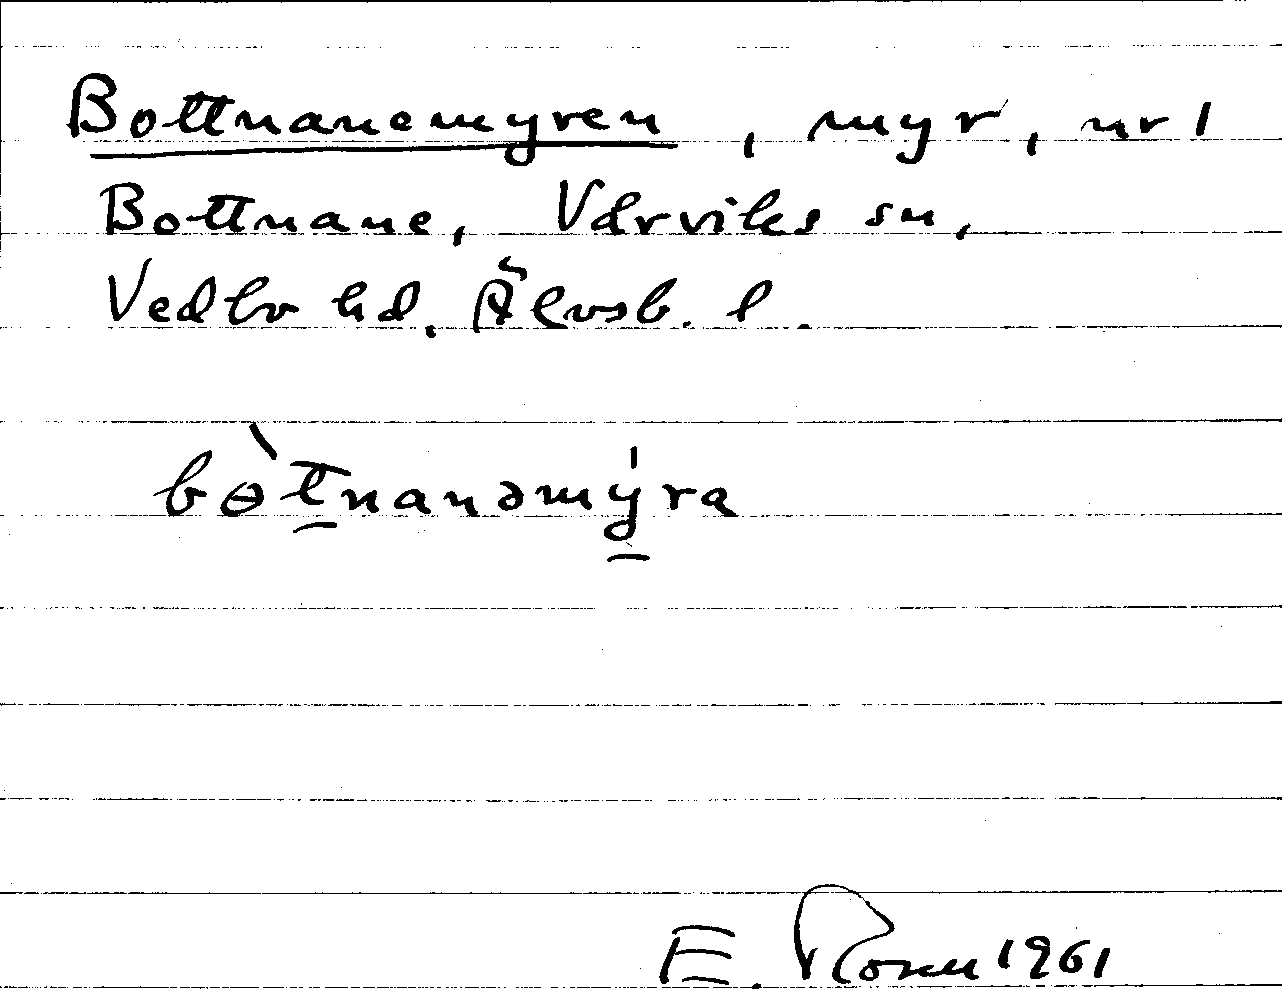 Bottnanemyren, myr, nr 1
Bottnane, Vårviks sn,
Vedbo hd. Älvsb. l.
bɵ̀t̠nanəmý̠ra
E. 1961